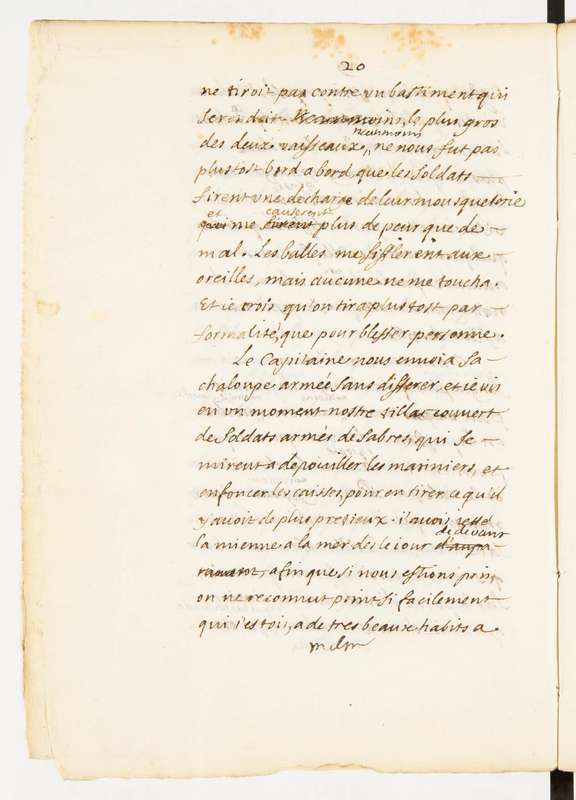 20
ne tiroit pas contre un bastiment qui
se rendoit. Neanmoins, le plus gros
des deux vaisseaux, ne nous fut pas
neanmoins
plustost bord a bord, que les soldats
firent une decharge de leur mousqueterie
et causerent
qui me firent plus de peur que de
mal. Les balles me sifflerent aux
oreilles, mais aucune ne me toucha.
Et ie crois qu'on tira plustost par
formalité, que pour blesser personne.
Le Capitaine nous envoia sa
chaloupe armée sans differer, et ie vis
en un moment nostre tillac couvert
de soldats armés de sabres, qui se
mirent a depouiller les mariniers, et
enfoncer les caisses, pour en tirer ce qu'il
y avoit de plus pretieux. i'avois ietté
de devant
la mienne a la mer des le iour d'aupa-
ravant, afin que, si nous estions pris
on ne reconnut point si facilement
qui i'estois, a de tres beaux habits a